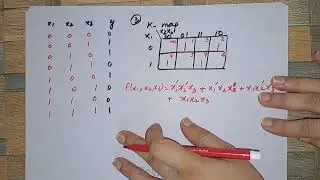 x₁ x₂ x₃ y
0 0 0 0
0 0 1 1
0 1 0 1
0 1 1 0
1 0 0 1
1 0 1 0
1 1 0 0
1 1 1 1
K-map
x₁ x₂x₃ 00 01 11 10
0
1
F(x₁, x₂x₃) = x₁'x₂'x₃ + x₁'x₂x₃' + x₁x₂'x₃'
+ x₁x₂x₃